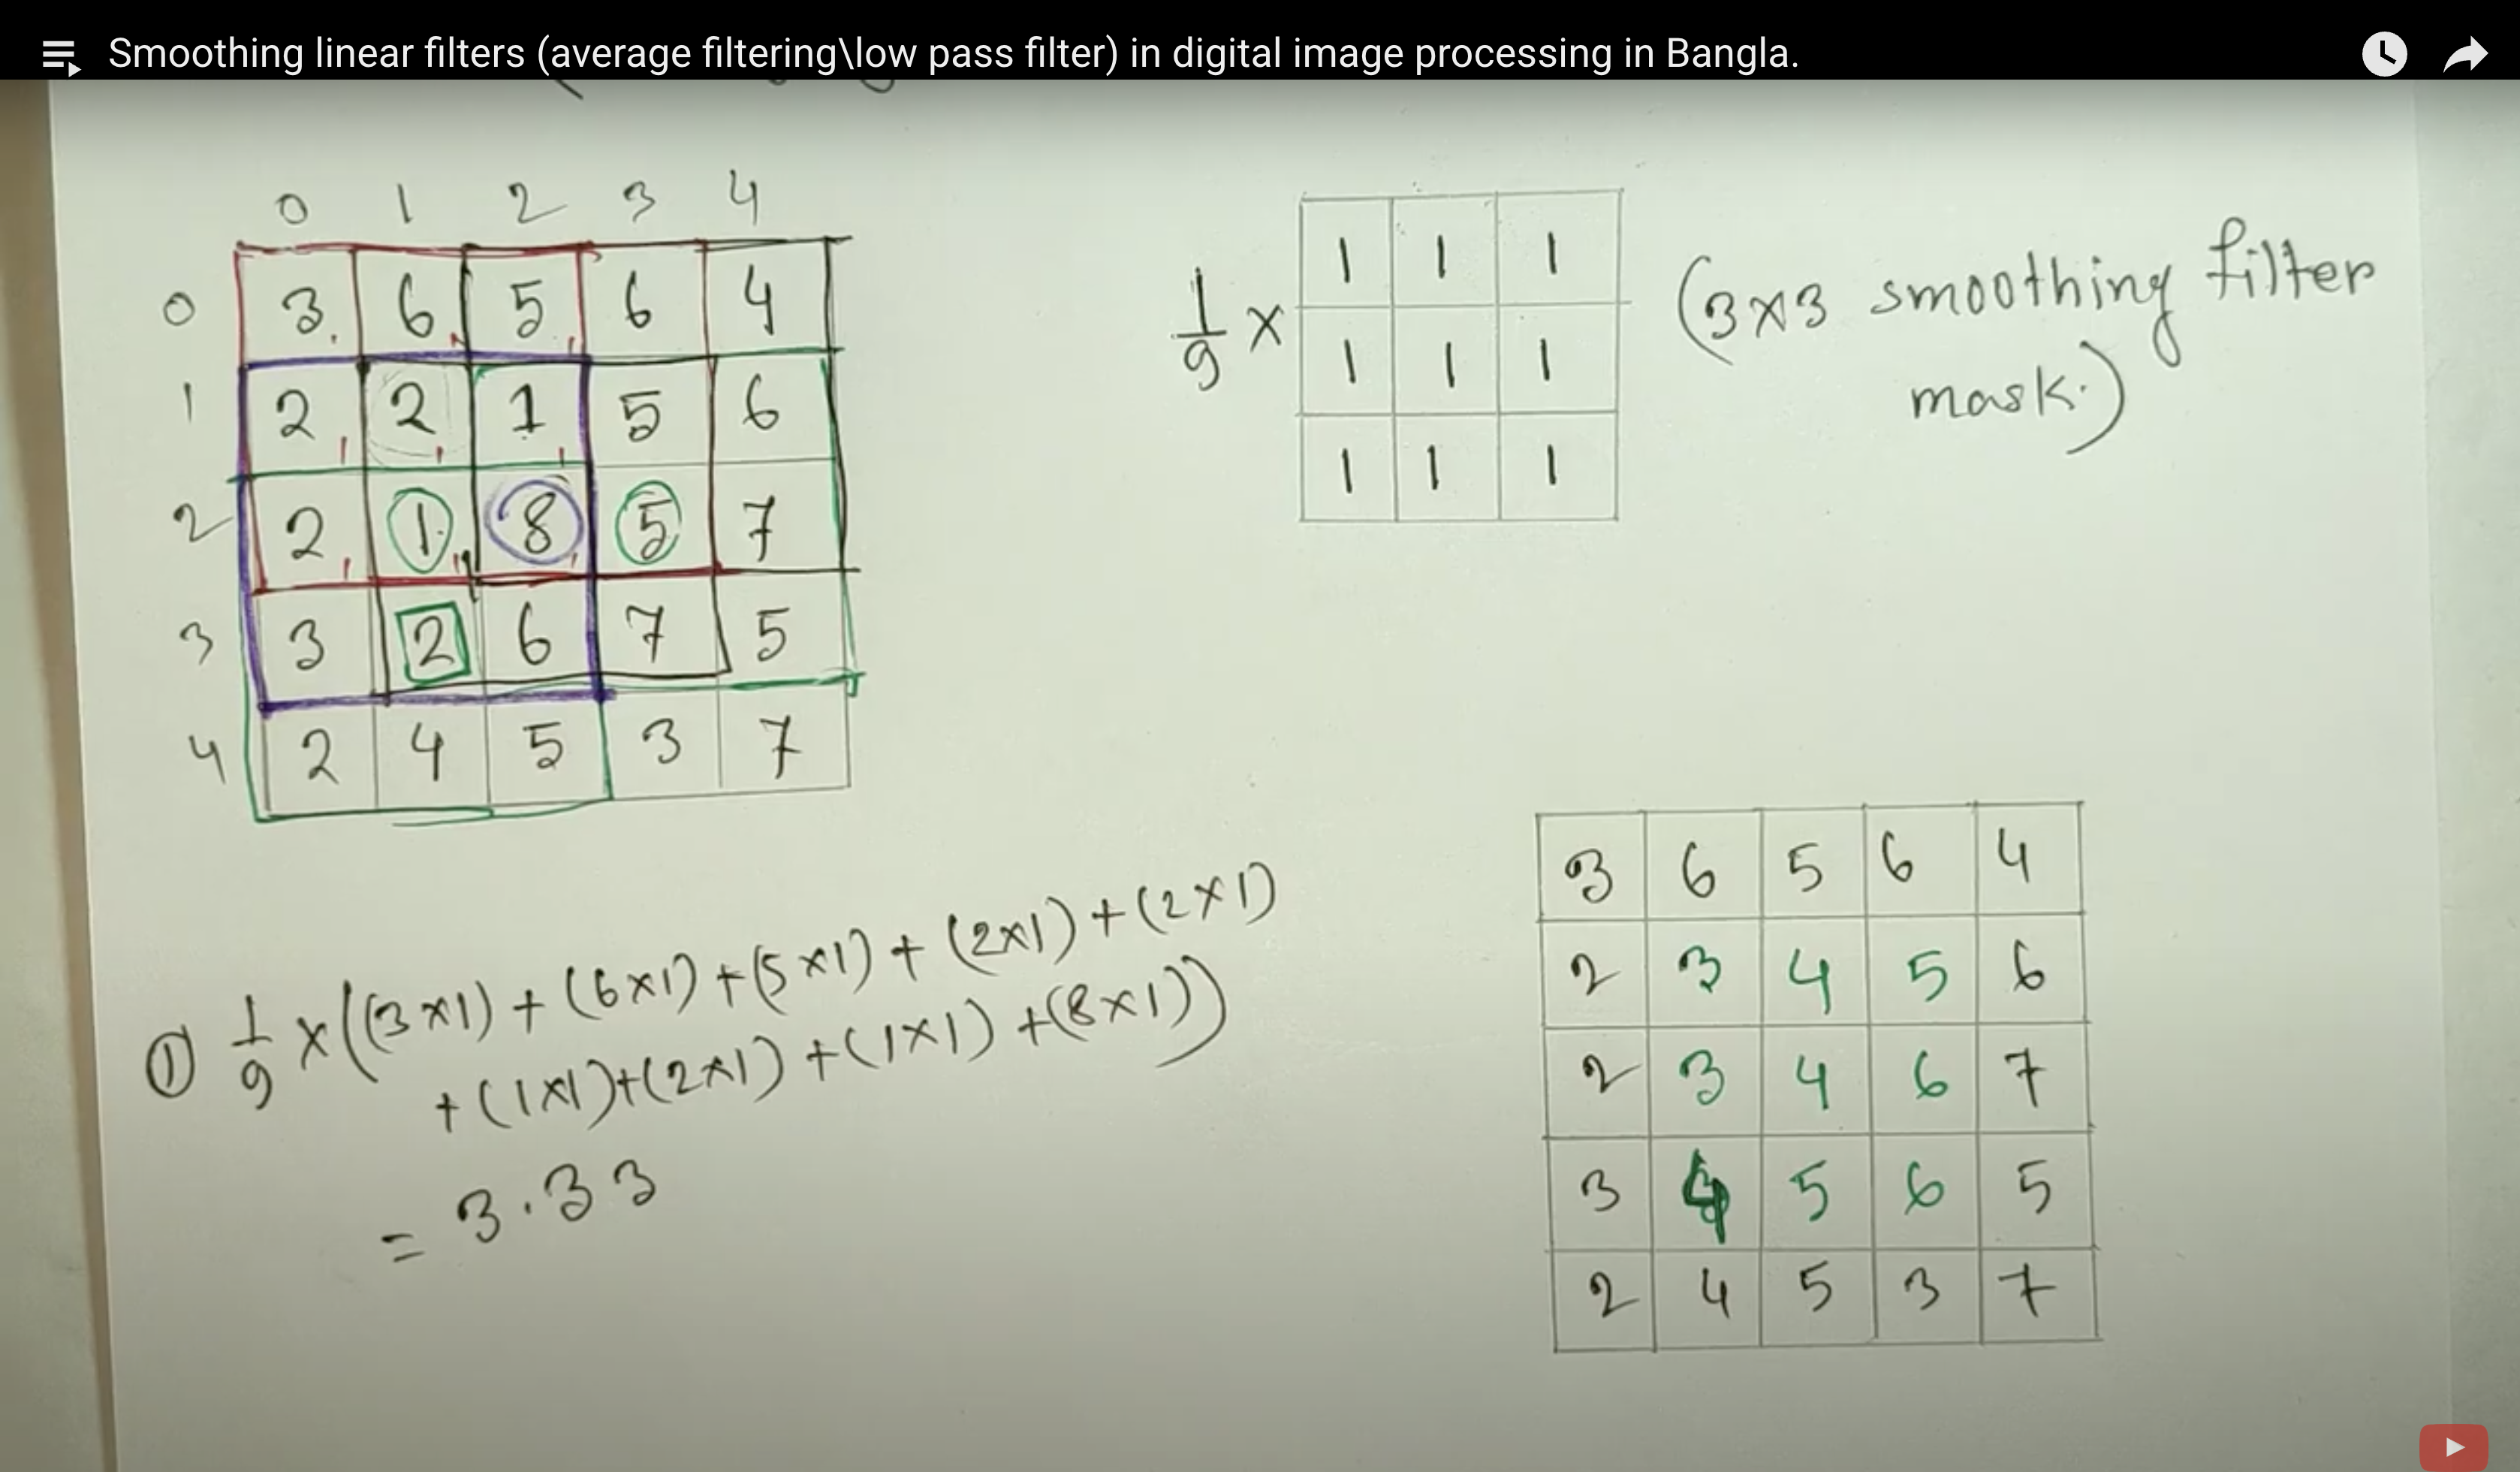 Smoothing linear filters (average filtering\low pass filter) in digital image processing in Bangla.
0 1 2 3 4
0 3 6 5 6 4
1 2 2 1 5 6
2 2 1 8 5 7
3 3 2 6 7 5
4 2 4 5 3 7
1/9 ×
1 1 1
1 1 1
1 1 1
(3×3 smoothing filter
mask.)
① 1/9 × ((3×1) + (6×1) + (5×1) + (2×1) + (2×1)
+ (1×1)+(2×1) + (1×1) + (8×1))
= 3.33
3 6 5 6 4
2 3 4 5 6
2 3 4 6 7
3 4 5 6 5
2 4 5 3 7